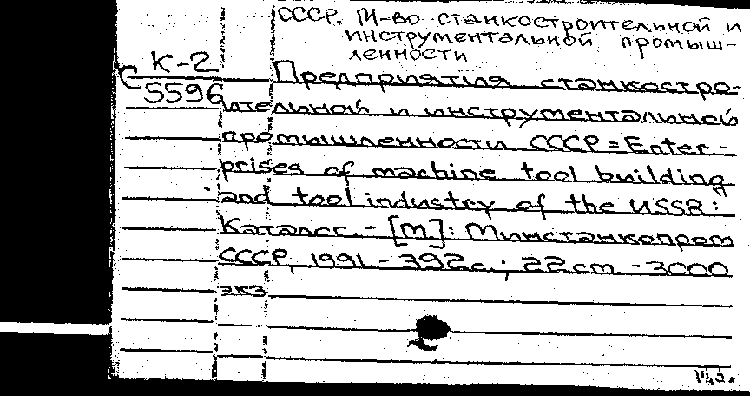 СССР. М-во станкостроительной и
инструментальной промыш-
ленности
К-2
С 5596
Предприятия станкостро-
ительной и инструментальной
промышленности СССР = Enter-
prises of machine tool building
and tool industry of the USSR:
Каталог. - [М.]: Минстанкопром
СССР, 1991 - 392с.; 22 cm - 3000
экз